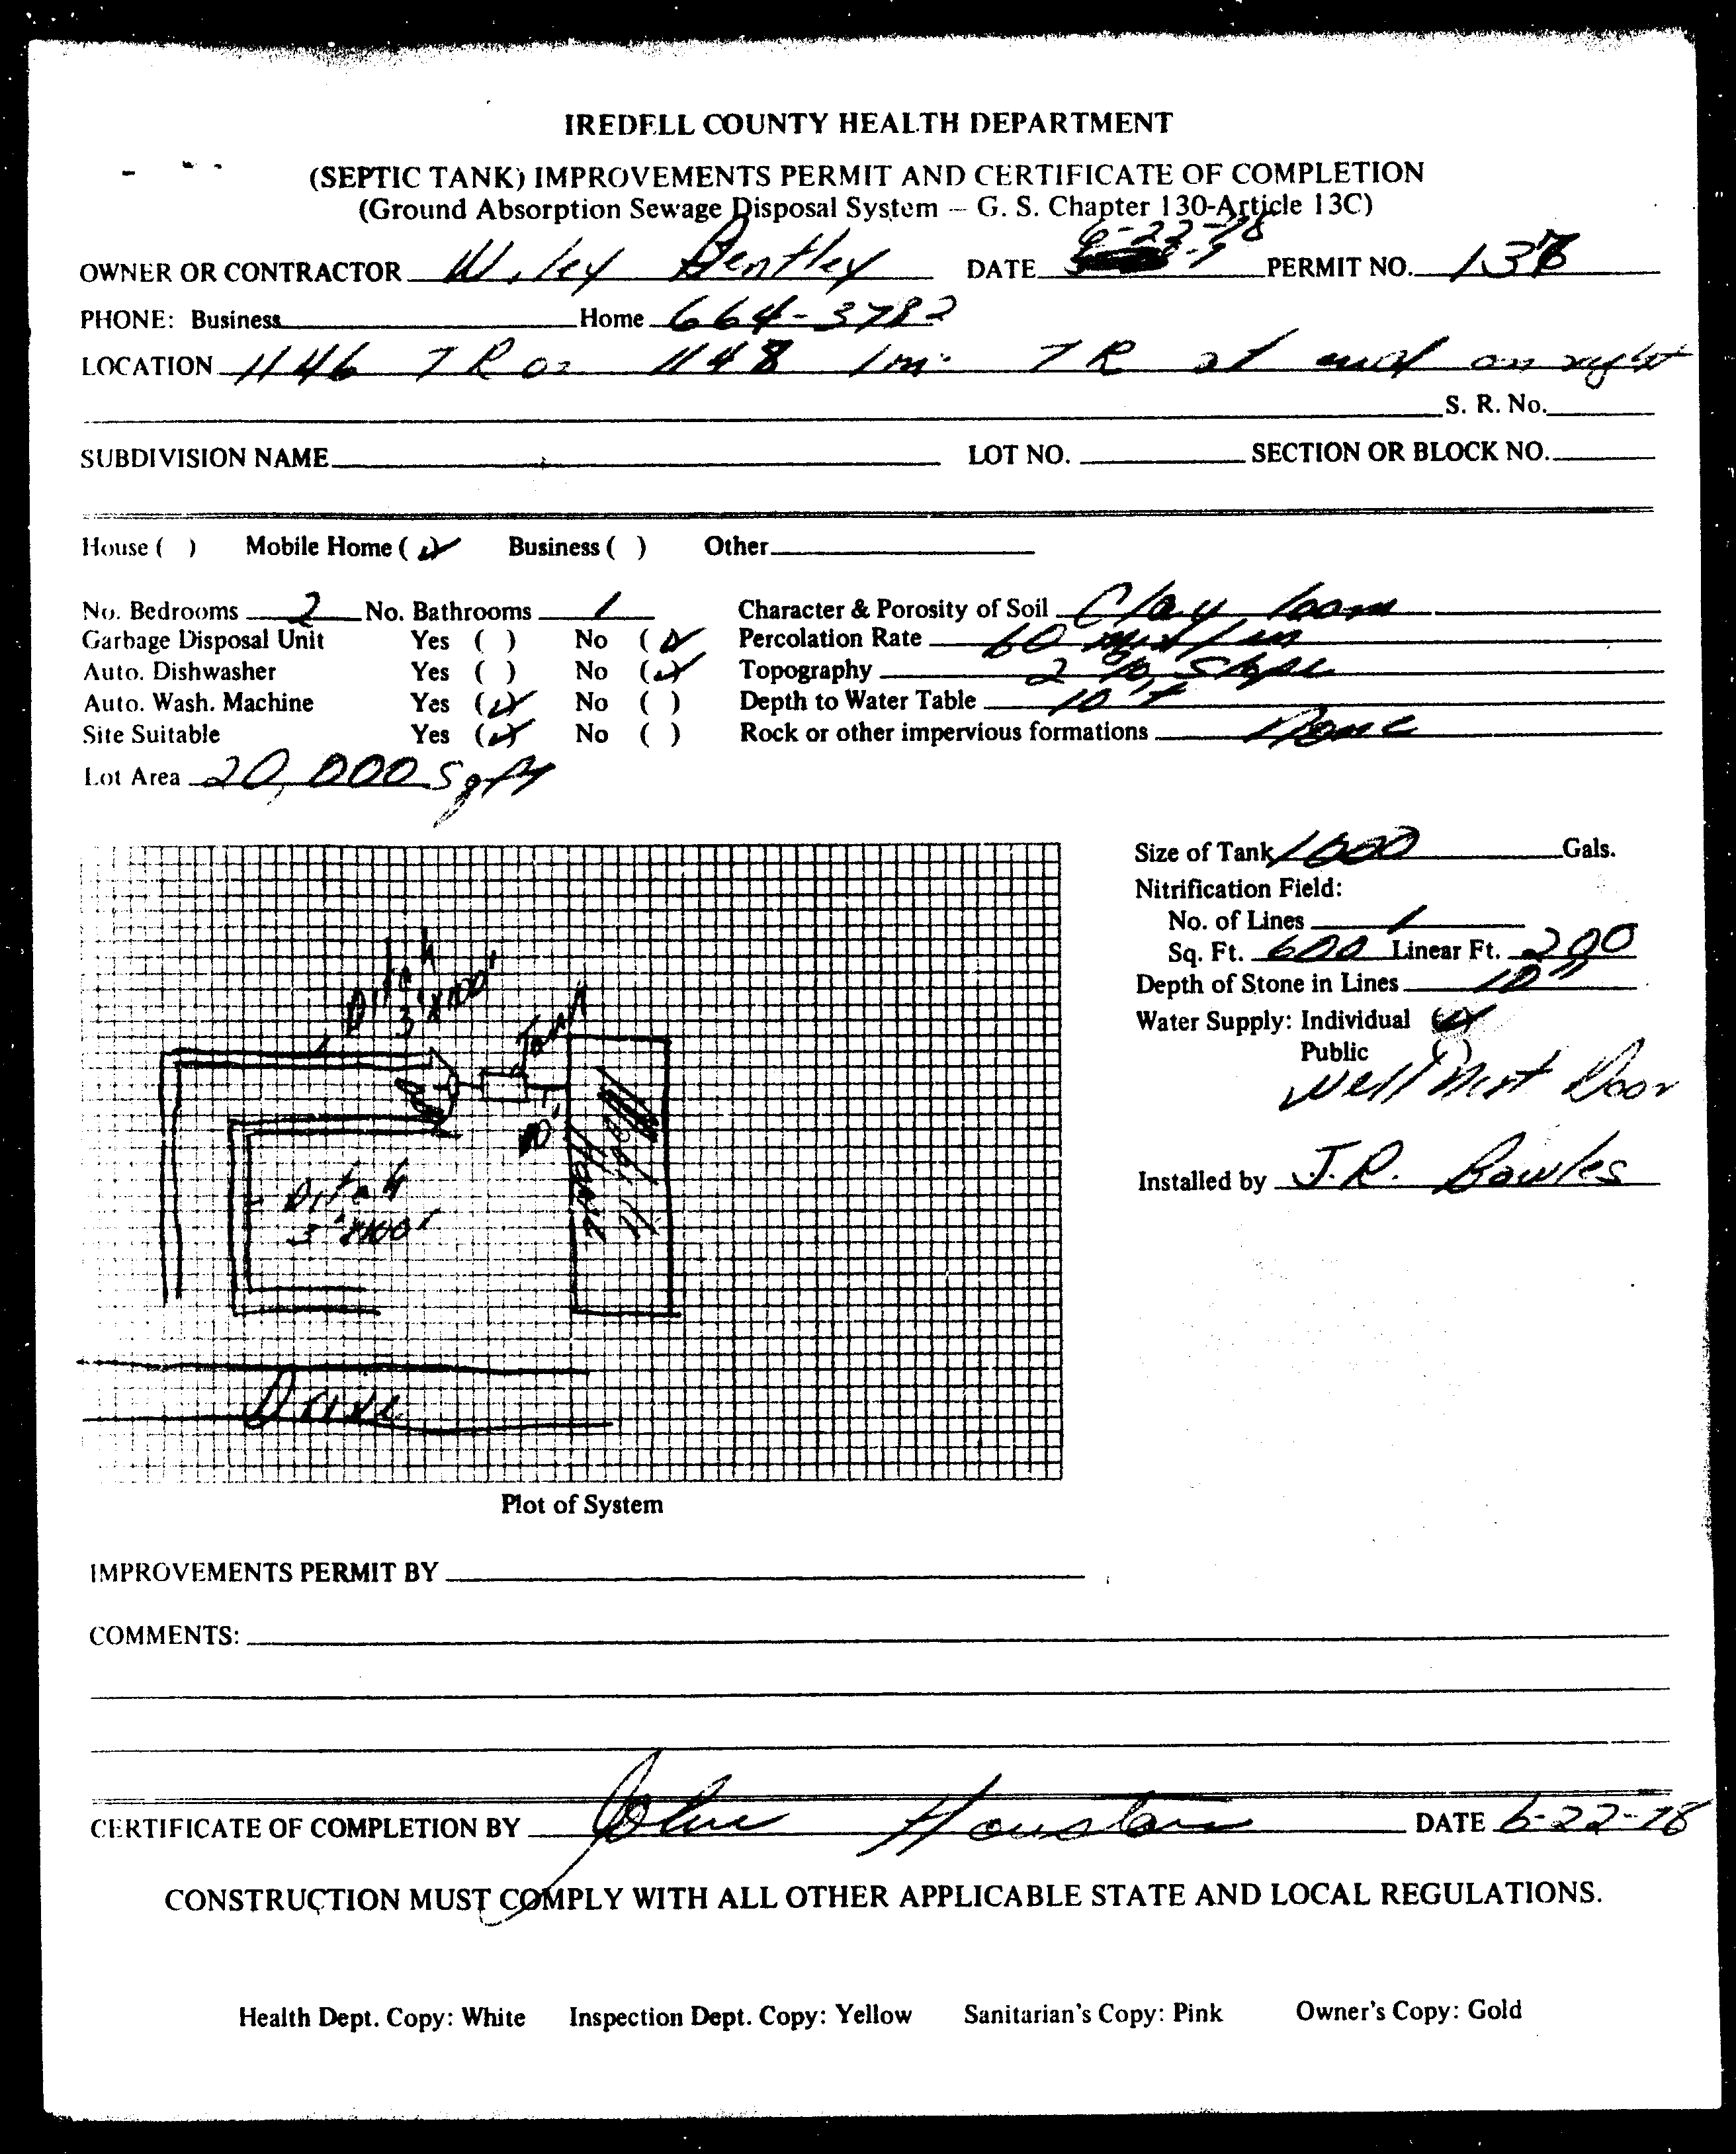 IREDELL COUNTY HEALTH DEPARTMENT
(SEPTIC TANK) IMPROVEMENTS PERMIT AND CERTIFICATE OF COMPLETION
(Ground Absorption Sewage Disposal System – G. S. Chapter 130-Article 13C)
OWNER OR CONTRACTOR Wiley Bentley DATE 6-22-78 PERMIT NO. 137
PHONE: Business Home 664-3782
LOCATION 1146 TR on 1148 1 mi TR at end on right
S. R. No.
SUBDIVISION NAME LOT NO. SECTION OR BLOCK NO.
House ( ) Mobile Home (✓) Business ( ) Other
No. Bedrooms 2 No. Bathrooms 1 Character & Porosity of Soil Clay loam
Garbage Disposal Unit Yes ( ) No (✓) Percolation Rate 60 min/in
Auto. Dishwasher Yes ( ) No (✓) Topography 2 % slope
Auto. Wash. Machine Yes (✓) No ( ) Depth to Water Table 10'+
Site Suitable Yes (✓) No ( ) Rock or other impervious formations None
Lot Area 20,000 Sq ft
Size of Tank 1000 Gals.
Nitrification Field:
No. of Lines 1
Sq. Ft. 600 Linear Ft. 200
Depth of Stone in Lines 10"
Water Supply: Individual (✓)
Public ( )
Well Next Door
Installed by J.R. Bowles
Ditch
3'x100'
Tank
10'
Ditch
3'x100'
Drive
Plot of System
IMPROVEMENTS PERMIT BY
COMMENTS:
CERTIFICATE OF COMPLETION BY John Houston DATE 6-22-78
CONSTRUCTION MUST COMPLY WITH ALL OTHER APPLICABLE STATE AND LOCAL REGULATIONS.
Health Dept. Copy: White Inspection Dept. Copy: Yellow Sanitarian's Copy: Pink Owner's Copy: Gold